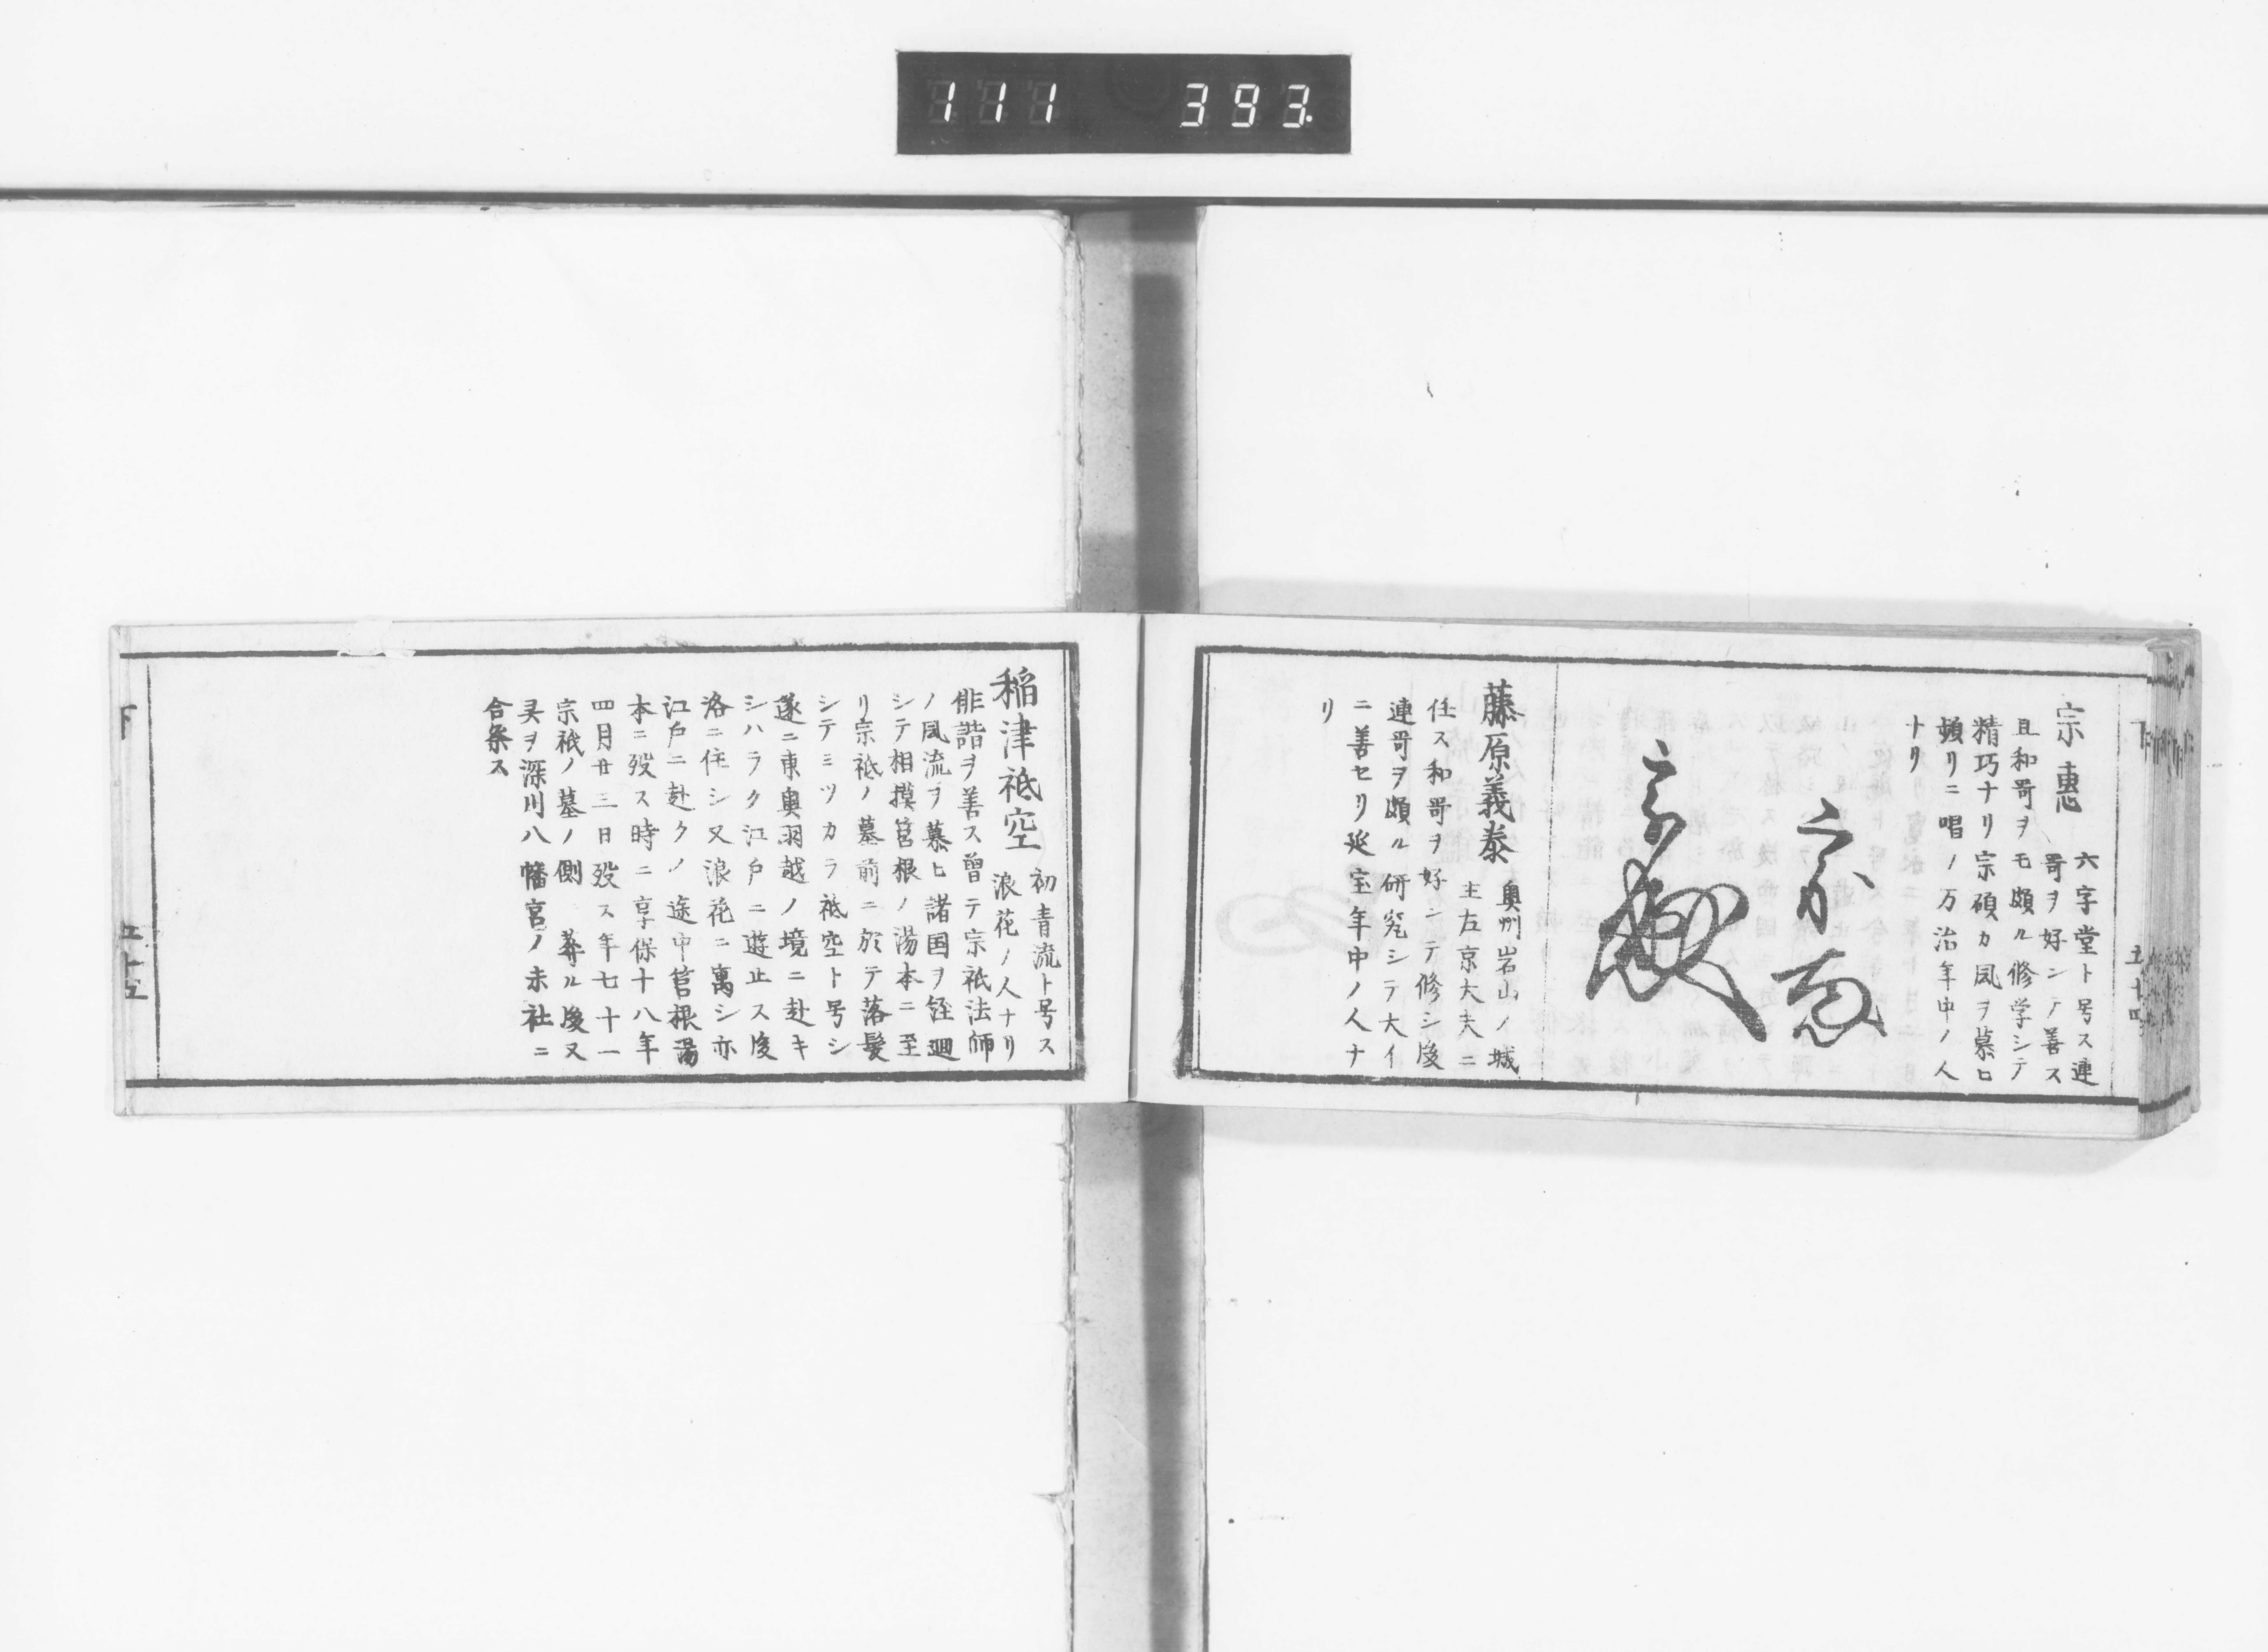 111 393.
宗惠
六字堂ト号ス連
哥ヲ好ンテ善ス
且和哥ヲモ頗ル修学シテ
精巧ナリ宗碩カ風ヲ慕ヒ
頻リニ唱ノ万治年中ノ人
ナリ
藤原義泰
奥州岩山ノ城
主左京大夫ニ
任ス和哥ヲ好ンテ修シ後
連哥ヲ頗ル研究シテ大イ
ニ善セリ延宝年中ノ人ナ
リ
下
五十四
稲津祗空
初青流ト号ス
浪花ノ人ナリ
俳諧ヲ善ス曽テ宗祇法師
ノ風流ヲ慕ヒ諸国ヲ経廻
シテ相摸筥根ノ湯本ニ至
リ宗祇ノ墓前ニ於テ落髪
シテミツカラ祗空ト号シ
遂ニ東奥羽越ノ境ニ赴キ
シハラク江戸ニ遊止ス後
洛ニ住シ又浪花ニ寓シ亦
江戸ニ赴クノ途中筥根湯
本ニ歿ス時ニ享保十八年
四月廿三日歿ス年七十一
宗祇ノ墓ノ側ニ葬ル後又
灵ヲ深川八幡宮ノ末社ニ
合祭ス
下
五十五